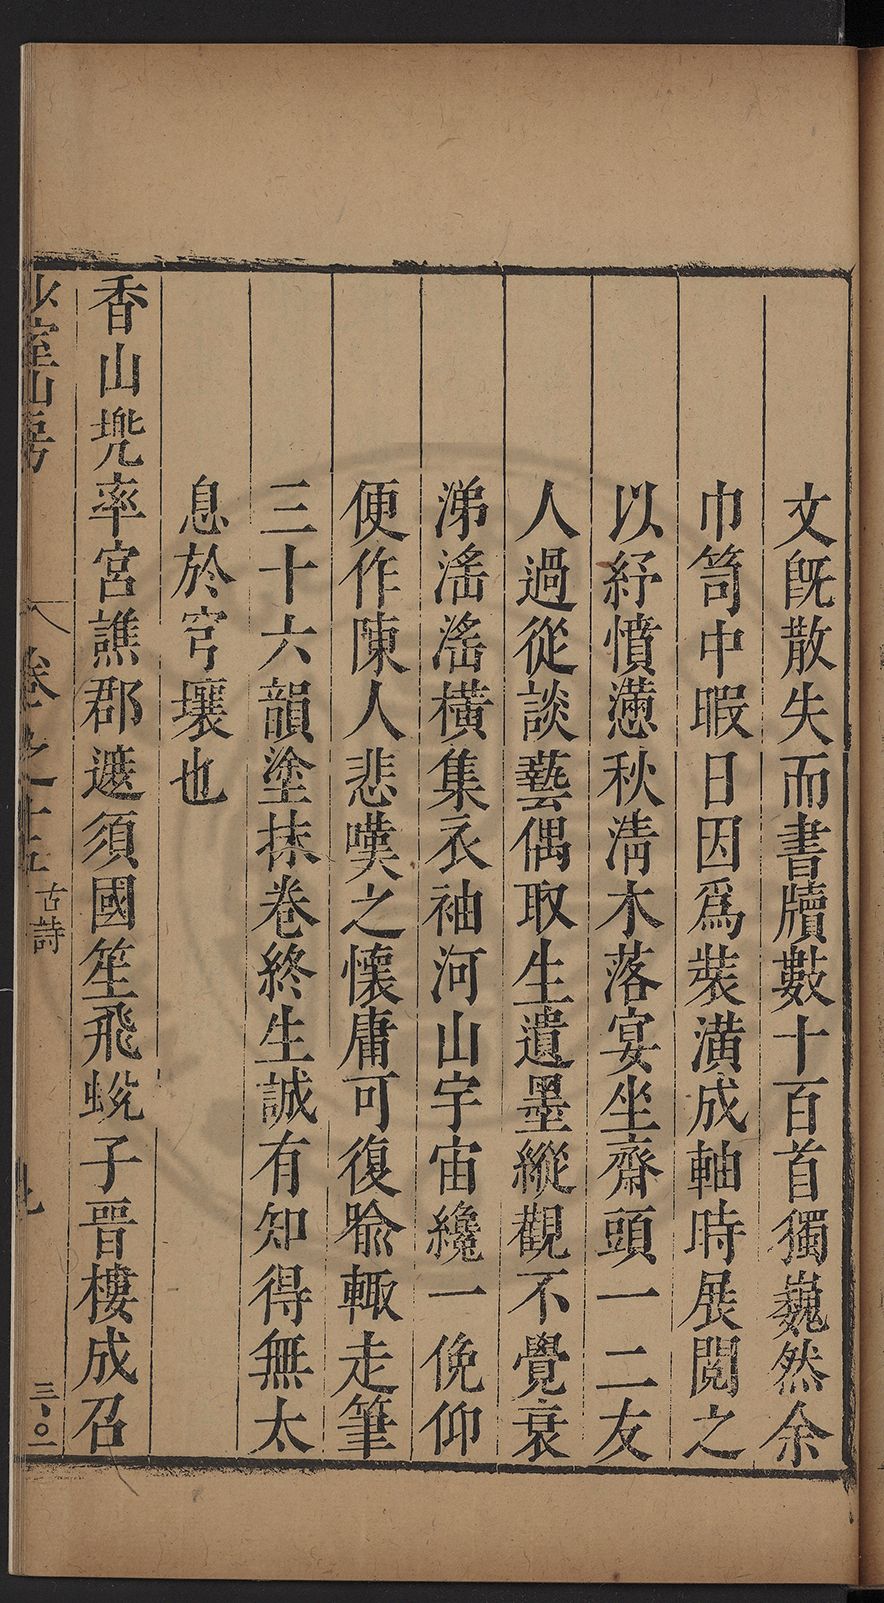 文旣散失而書牘數十百首獨巍然余
巾笥中暇日因爲裝潢成軸時展閱之
以紓憤懑秋淸木落宴坐齋頭一二友
人過從談藝偶取生遺墨縱觀不覺哀
涕滛滛橫集衣袖河山宇宙纔一俛仰
便作陳人悲嘆之懷庸可復喻輙走筆
三十六韻塗抹卷終生誠有知得無太
息於穹壤也
香山兠率宮譙郡遮須國笙飛蛻子晉樓成召
少室山房
卷之十五
古詩
三〇一